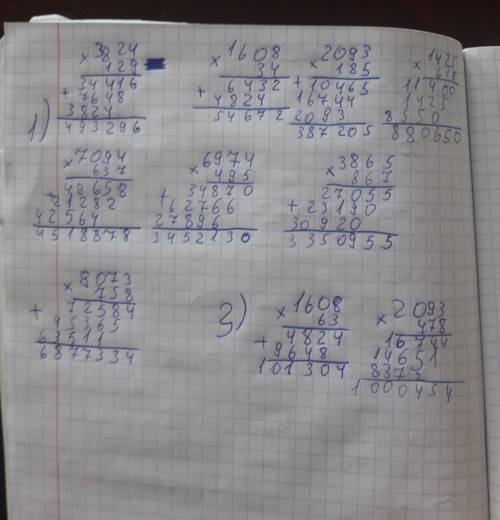 1)
× 3824
129
34416
+ 7648
3824
493296
× 1608
34
6432
+ 4824
54672
× 2093
185
+ 10465
16744
2093
387205
× 1425
618
11400
1425
8550
880650
× 7094
637
49658
+ 21282
42564
4518878
× 6974
495
34870
+ 62766
27896
3452130
× 3865
867
27055
+ 23190
30920
3350955
× 9073
758
72584
+ 45365
63511
6877334
3)
× 1608
63
4824
+ 9648
101304
× 2093
478
16744
14651
8372
1000454